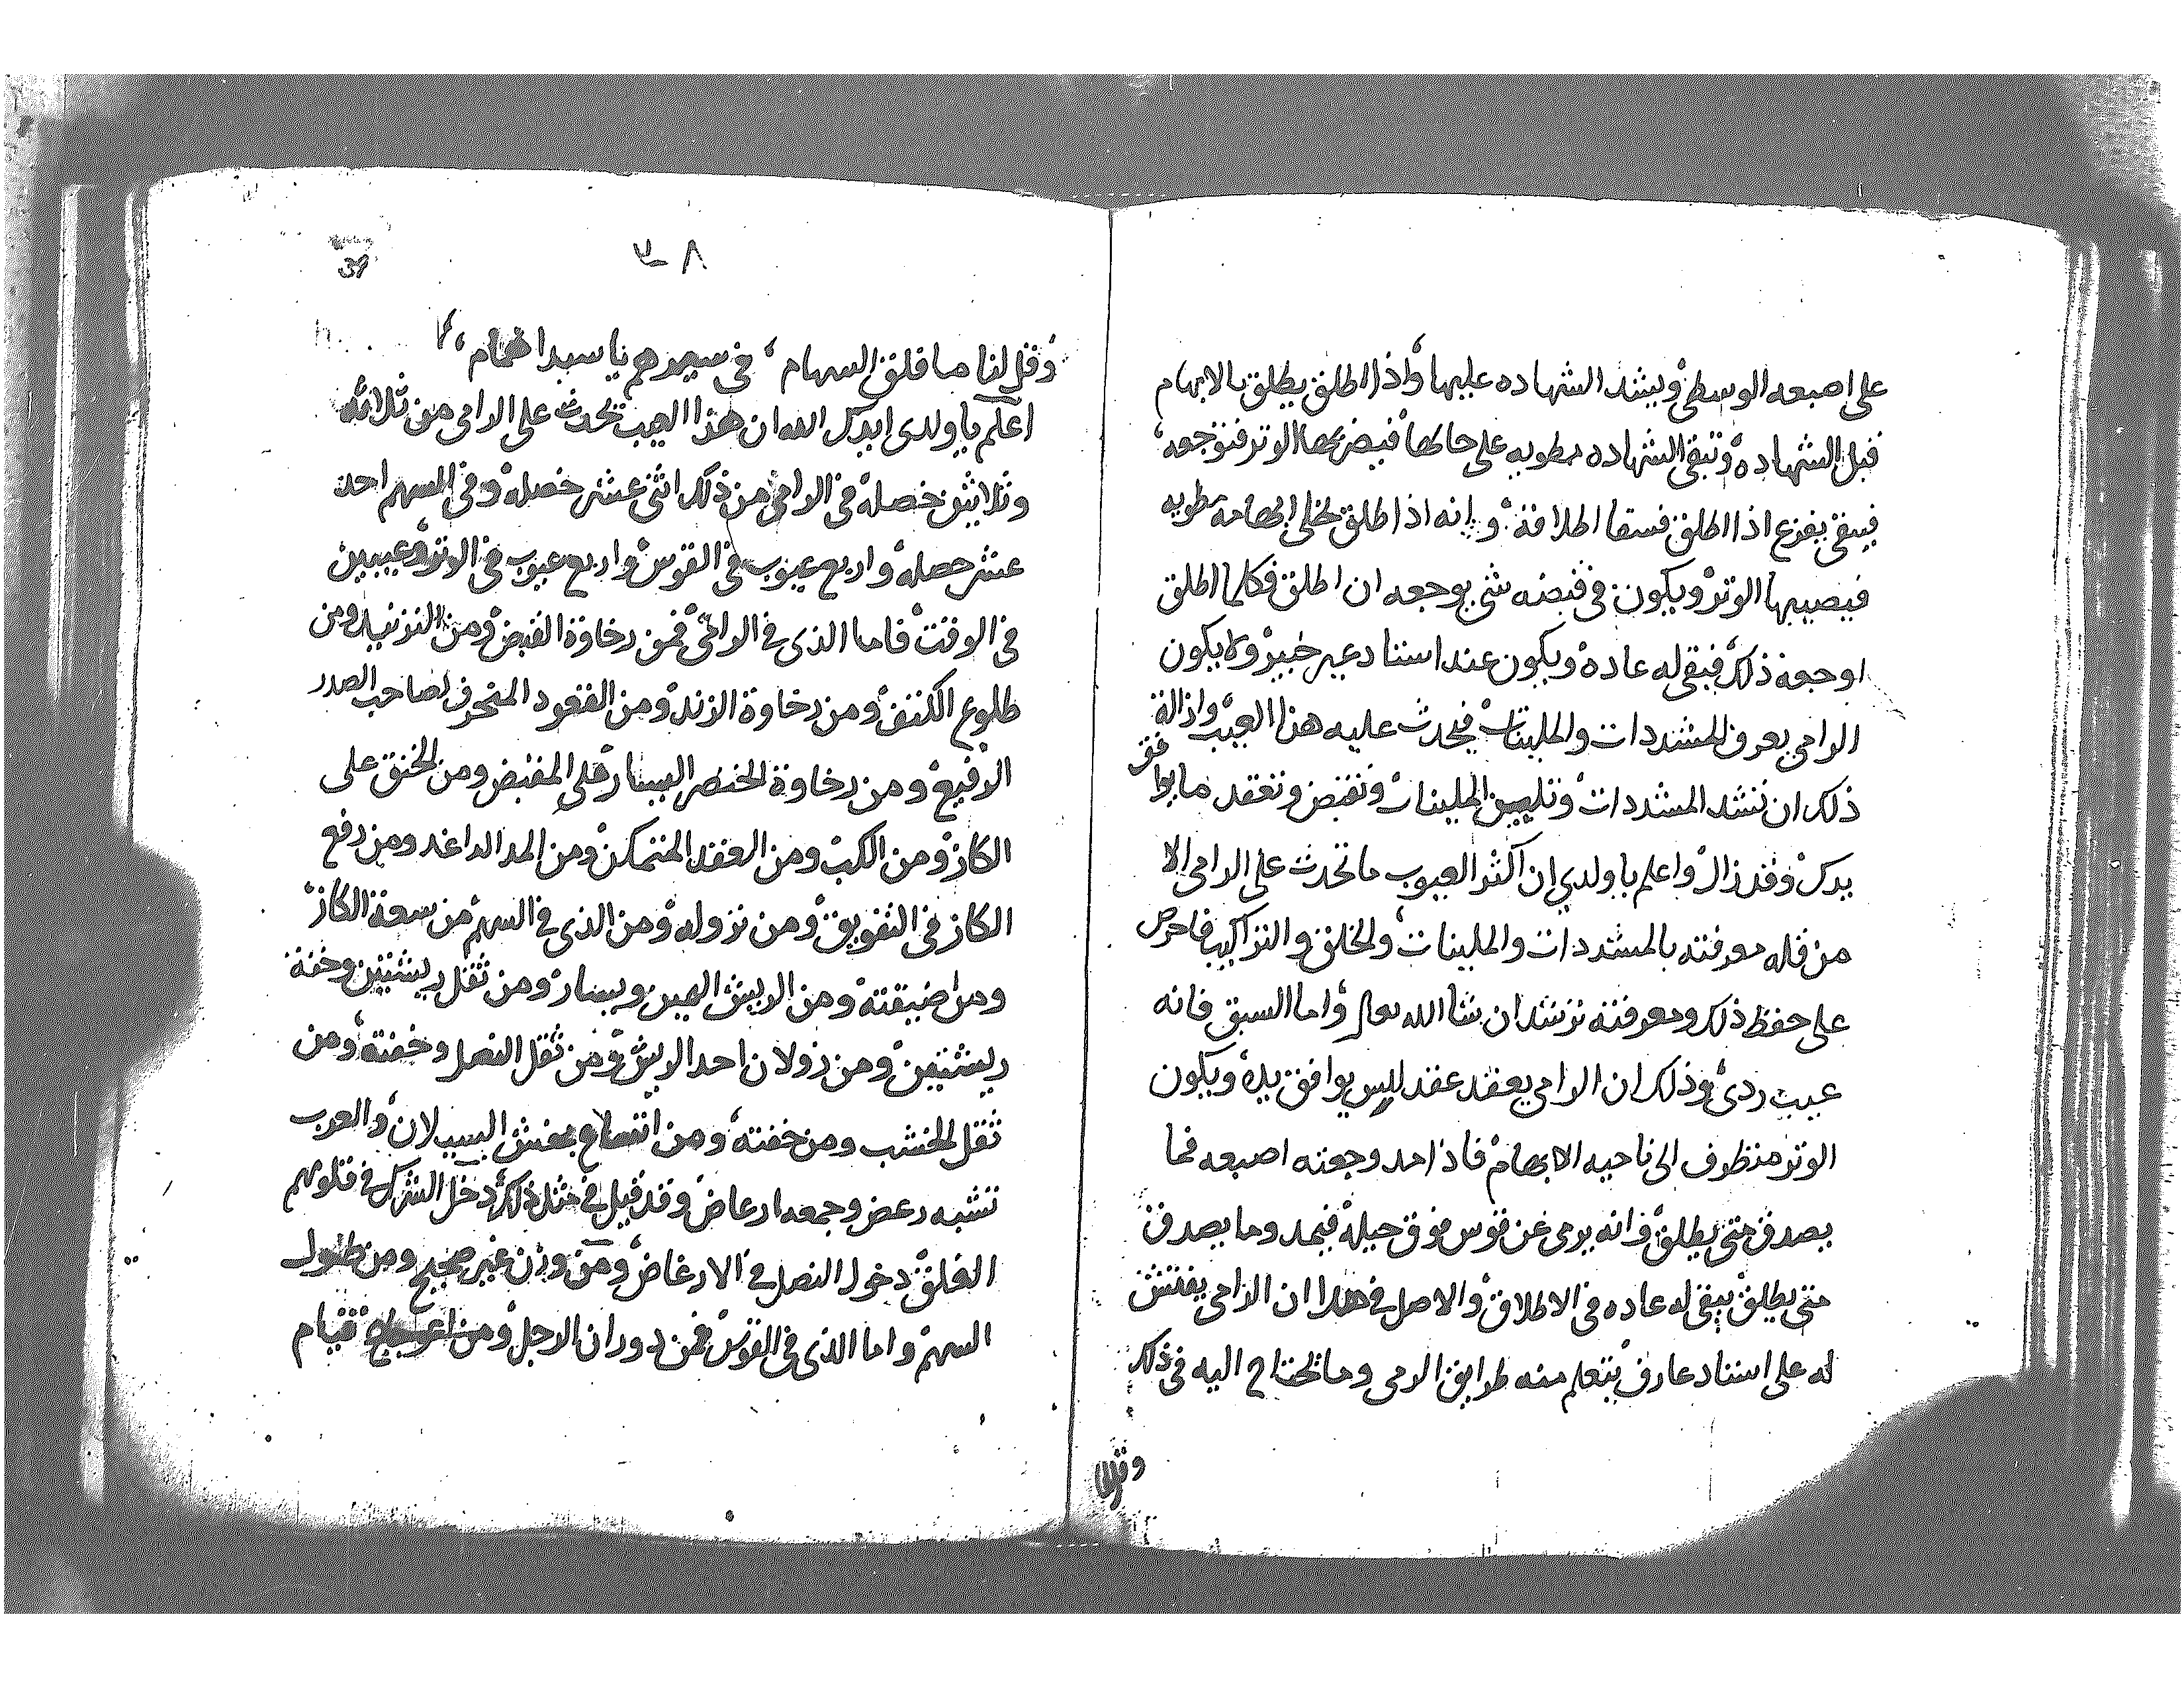 على اصبعه الوسطى ويشد الشهاده عليها واذا اطلق يطلق بالابهام
قبل الشهاده وتبقى الشهاده مطويه على حالها فيضربها الوتر فتوجعه
فيبقى يفزع اذا اطلق اطلاقة وانه اذا اطلق يخلى ابهامه مطويه
فيصيبها الوتر ويكون فى قبضه شى يوجعه ان اطلق فكلما اطلق
اوجعه ذلك فبقى له عاده ويكون عند استاد غير خبير ولا يكون
الرامى يعرف المشددات والملينات فيحدث عليه هذا العيب وازالة
ذلك ان تشد المشددات وتليين الملينات وتقبض وتعقد ما يوافق
يدك وقد زال واعلم يا ولدي ان اكثر العيوب ما تحدث على الرامى الا
من قله معرفته بالمشددات والملينات والخلق والتراكيب فاحرص
على حفظ ذلك ومعرفته ترشد ان شا الله تعالى واما السبق فانه
عيب ردى وذلك ان الرامى يعقد عقد ليس يوافق يده ويكون
الوتر منظرف الى ناحيه الابهام فاذا مد وجعته اصبعه فما
يصدق متى يطلق وانه يرمى عن قوس فوق حيله فيمد وما يصدق
متى يطلق يبقى له عاده فى الاطلاق والاصل فى هذا ان الرامى يفتش
له على استاد عارف يتعلم منه طرايق الرمى وما يحتاج اليه فى ذلك
وقل لنا
٣٨
39
وقل لنا ما قلق السهام فى سيرهم يا سيدا همام
اعلم يا ولدى ايدك الله ان هذا العيب يحدث على الرامى من ثلاثة
وثلاثين خصلة فى الرامى من ذلك اثنى عشر خصلة وفى السهم احد
عشر خصله واربع عيوب فى القوس واربع عيوب فى الوتر وعيبين
فى الوقت فاما الذى فى الرامى فمن رخاوة القبض ومن النزنيد ومن
طلوع الكتف ومن رخاوة الزند ومن القعود المنحرف لصاحب الصدر
الرفيع ومن رخاوة الخنصر اليسار على المقبض ومن الخنق على
الكاز ومن الكب ومن العقد المتمكن ومن المد الداغد ومن رفع
الكاز فى التفويق ومن نزوله ومن الذى فى السهم من سعة الكاز
ومن ضيقته ومن الريش اليمين ويسار ومن ثقل ريشتين وخفة
ريشتين ومن زولان احد الريش ومن ثقل النصل وخفته ومن
ثقل الخشب ومن خفته ومن السيلان والعرب
تشبه رعض وجمعه ارعاض وقد قيل فى مثل ذلك دخل الشرك فى قلوبهم
القلق دخول النصل فى الارعاض ومن وزن غير صحيح ومن طول
السهم واما الذى فى القوس فمن دوران الرجل ومن قيام